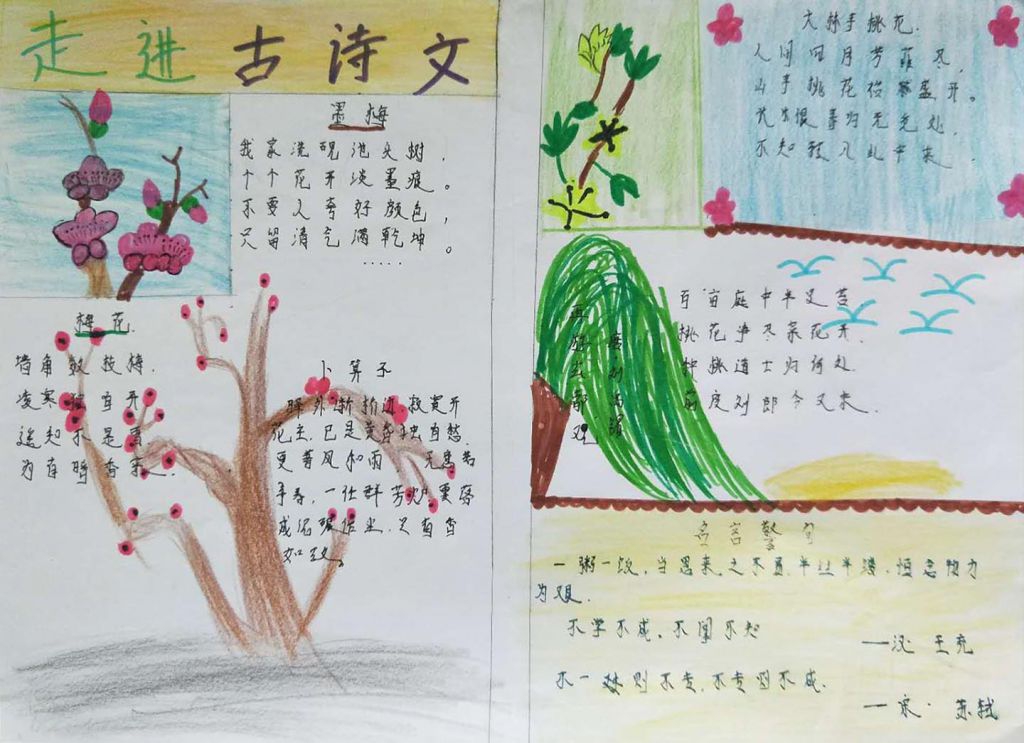 走进古诗文
墨梅
我家洗砚池头树，
个个花开淡墨痕。
不要人夸好颜色，
只留清气满乾坤。
.....
梅花
墙角数枝梅.
凌寒独自开
遥知不是雪
为有暗香来.
卜算子
驿外断桥边,寂寞开
花主,已是黄昏独自愁
更著风和雨 无意苦
争春,一任群芳妒零落
成泥碾作尘,只有香
如故。
大林寺桃花.
人间四月芳菲尽,
山寺桃花始盛开.
长恨春归无觅处.
不知转入此中来
再游玄都观
百亩庭中半是苔
桃花净尽菜花开.
种桃道士归何处
前度刘郎今又来.
名言警句
一粥一饭,当思来之不易,半丝半缕,恒念物力
为艰.
不学不成,不闻不知
——汉 王充
不一则不专,不专则不成.
一宋·苏轼